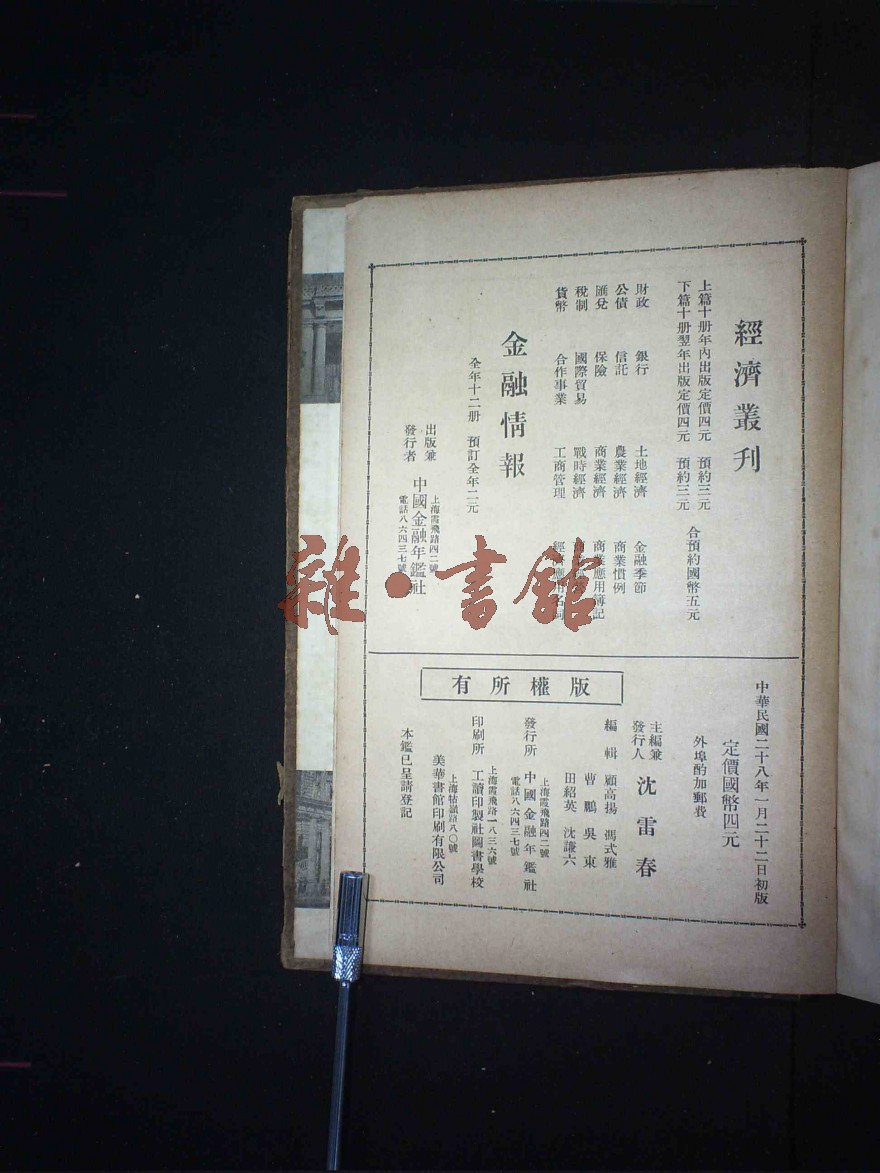 經濟叢刊
上篇十册年內出版定價四元　預約三元
下篇十册翌年出版定價四元　預約三元
合預約國幣五元
財政　銀行　土地經濟　金融季節
公債　信託　農業經濟　商業慣例
匯兌　保險　商業經濟　商業應用簿記
稅制　國際貿易　戰時經濟
貨幣　合作事業　工商管理　經濟應用名詞
金融情報
全年十二册　預訂全年二元
出版兼
發行者
上海霞飛路四二號
中國金融年鑑社
電話八六四三七號
雜·書館
中華民國二十八年一月二十二日初版
定價國幣四元
外埠酌加郵費
版權所有
主編兼
發行人
沈雷春
編輯　顧高揚　馮式雅
曹鵬　吳東
田紹英　沈謙六
發行所
上海霞飛路四二號
中國金融年鑑社
電話八六四三七號
印刷所
上海霞飛路一八三六號
工讀印製社圖書學校
上海牯嶺路八〇號
美華書館印刷有限公司
本鑑已呈請登記